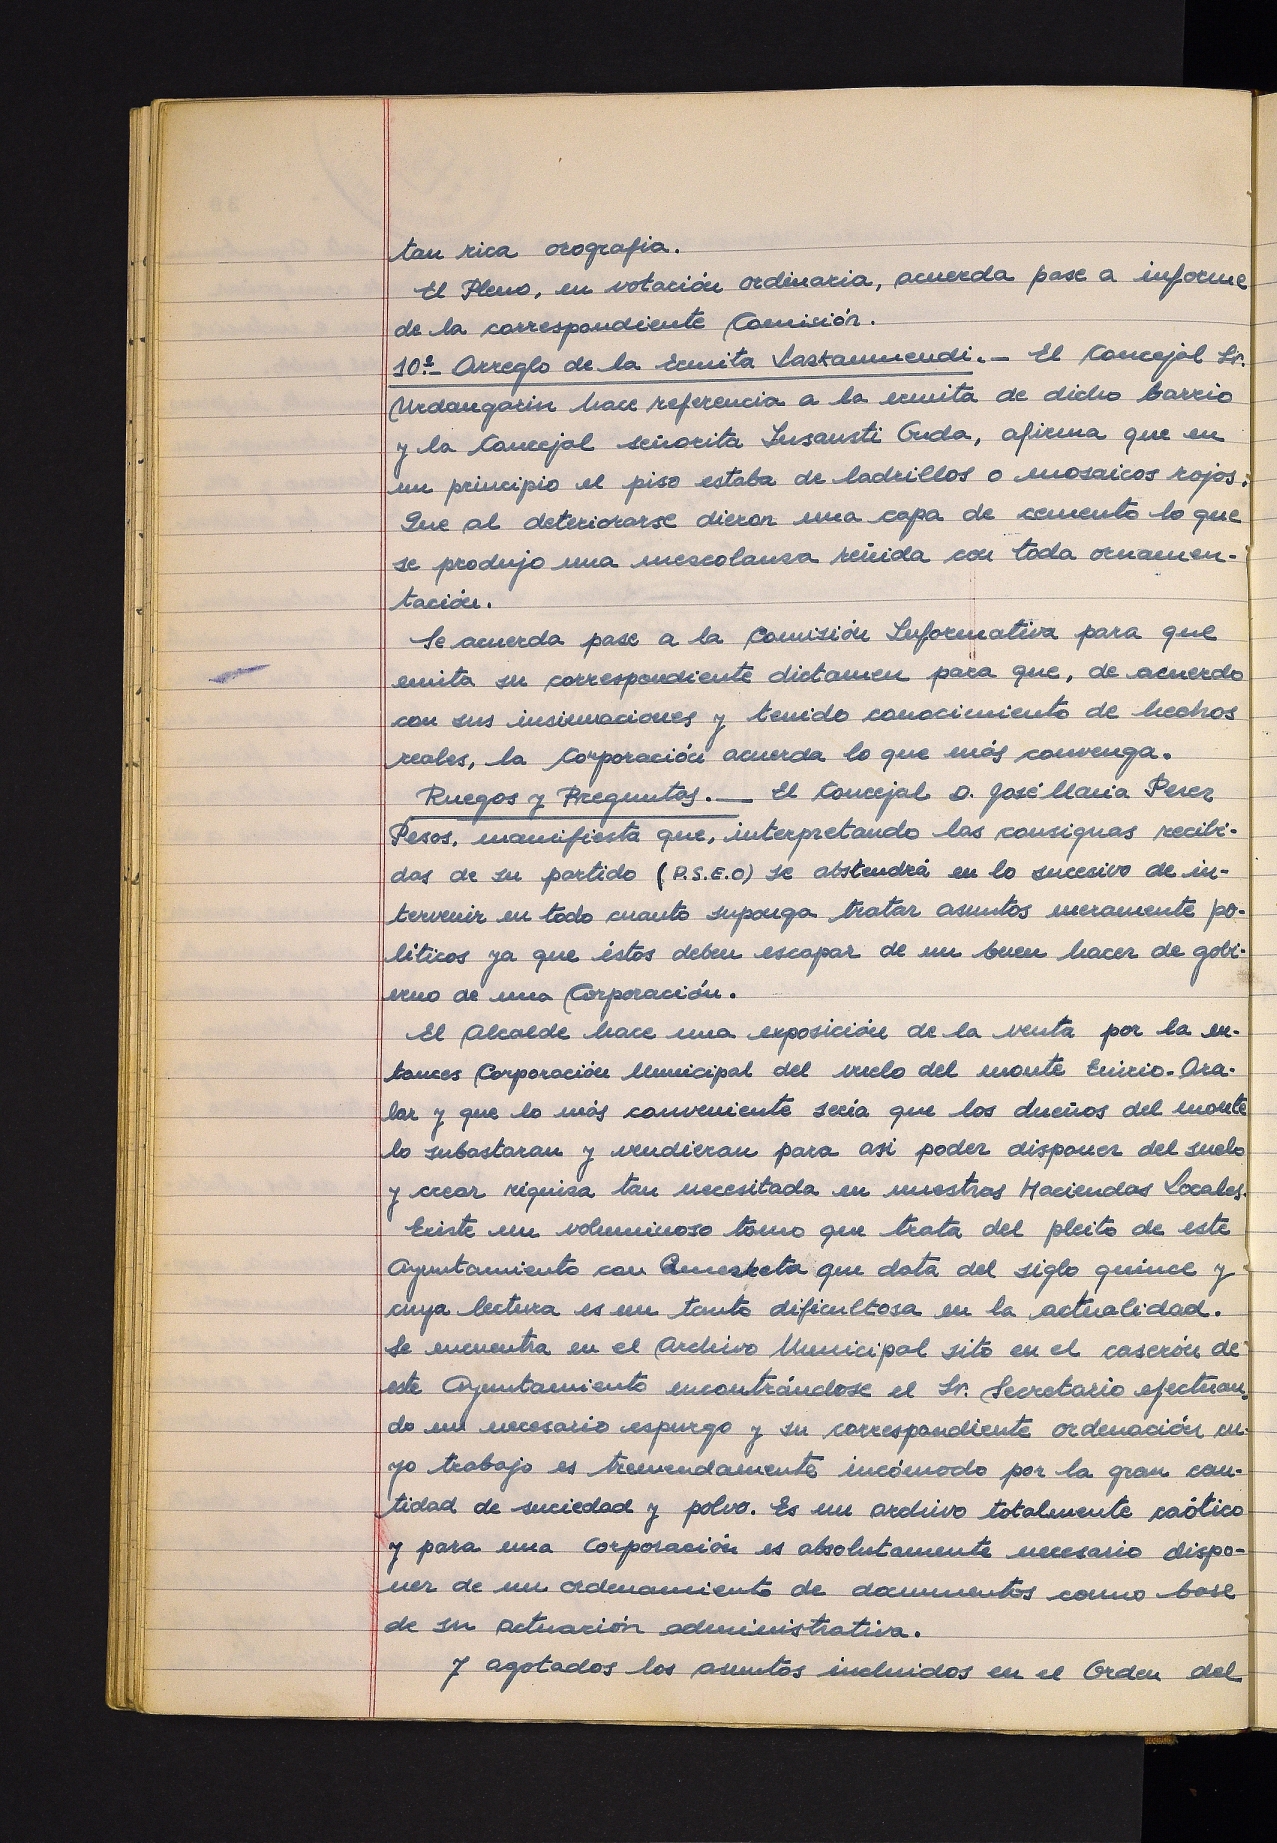 tan rica orografia.
El Pleno, en votación ordinaria, acuerda pase a informe
de la correspondiente Comisión.
10º- Arreglo de la Ermita Lazkaumendi.- El Concejal Sr.
Urdangarin hace referencia a la ermita de dicho barrio
y la Concejal señorita Insausti Onda, afirma que en
un principio el piso estaba de ladrillos o mosaicos rojos:
Que al deteriorarse dieron una capa de cemento lo que
se produjo una mescolanza reñida con toda ornamen-
tación.
Se acuerda pase a la Comisión Informativa para que
emita su correspondiente dictamen para que, de acuerdo
con sus insinuaciones y tenido conocimiento de hechos
reales, la Corporación acuerda lo que más convenga.
Ruegos y Preguntas.— El Concejal D. José Maria Perez
Pesos, manifiesta que, interpretando las consignas recibi-
das de su partido (P.S.E.O) se abstendrá en lo sucesivo de in-
tervenir en todo cuanto suponga tratar asuntos meramente po-
líticos ya que éstos deben escapar de un buen hacer de gobi-
erno de una Corporación.
El Alcalde hace una exposición de la venta por la en-
tonces Corporación Municipal del vuelo del monte Enirio-Ara-
lar y que lo más conveniente sería que los dueños del monte
lo subastaran y vendieran para asi poder disponer del suelo
y crear riquiza tan necesitada en nuestras Haciendas Locales.
Existe un voluminoso tomo que trata del pleito de este
Ayuntamiento con Amezketa que data del siglo quince y
cuya lectura es un tanto dificultosa en la actualidad.
Se encuentra en el Archivo Municipal sito en el caserón de
este Ayuntamiento encontrándose el Sr. Secretario efectuan-
do un necesario espurgo y su correspondiente ordenación cu-
yo trabajo es tremendamente incómodo por la gran can-
tidad de suciedad y polvo. Es un archivo totalmente caótico
y para una Corporación es absolutamente necesario dispo-
ner de un ordenamiento de documentos como base
de su actuación administrativa.
Y agotados los asuntos incluidos en el Orden del